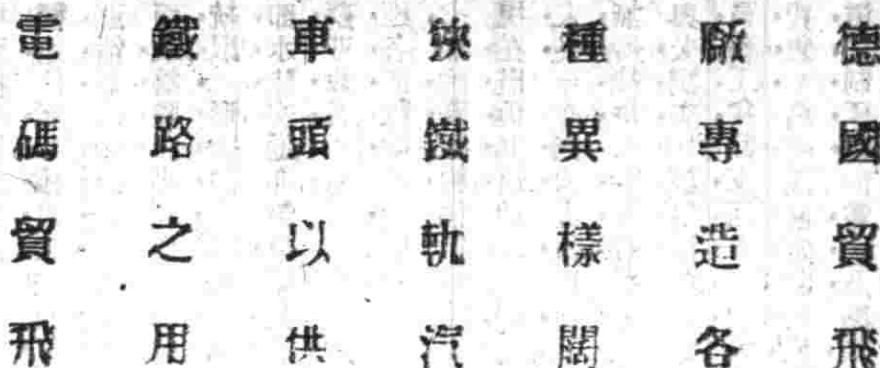 德國貿飛
廠專造各
種異樣闊
狹鐵軌汽
車頭以供
鐵路之用
電碼貿飛